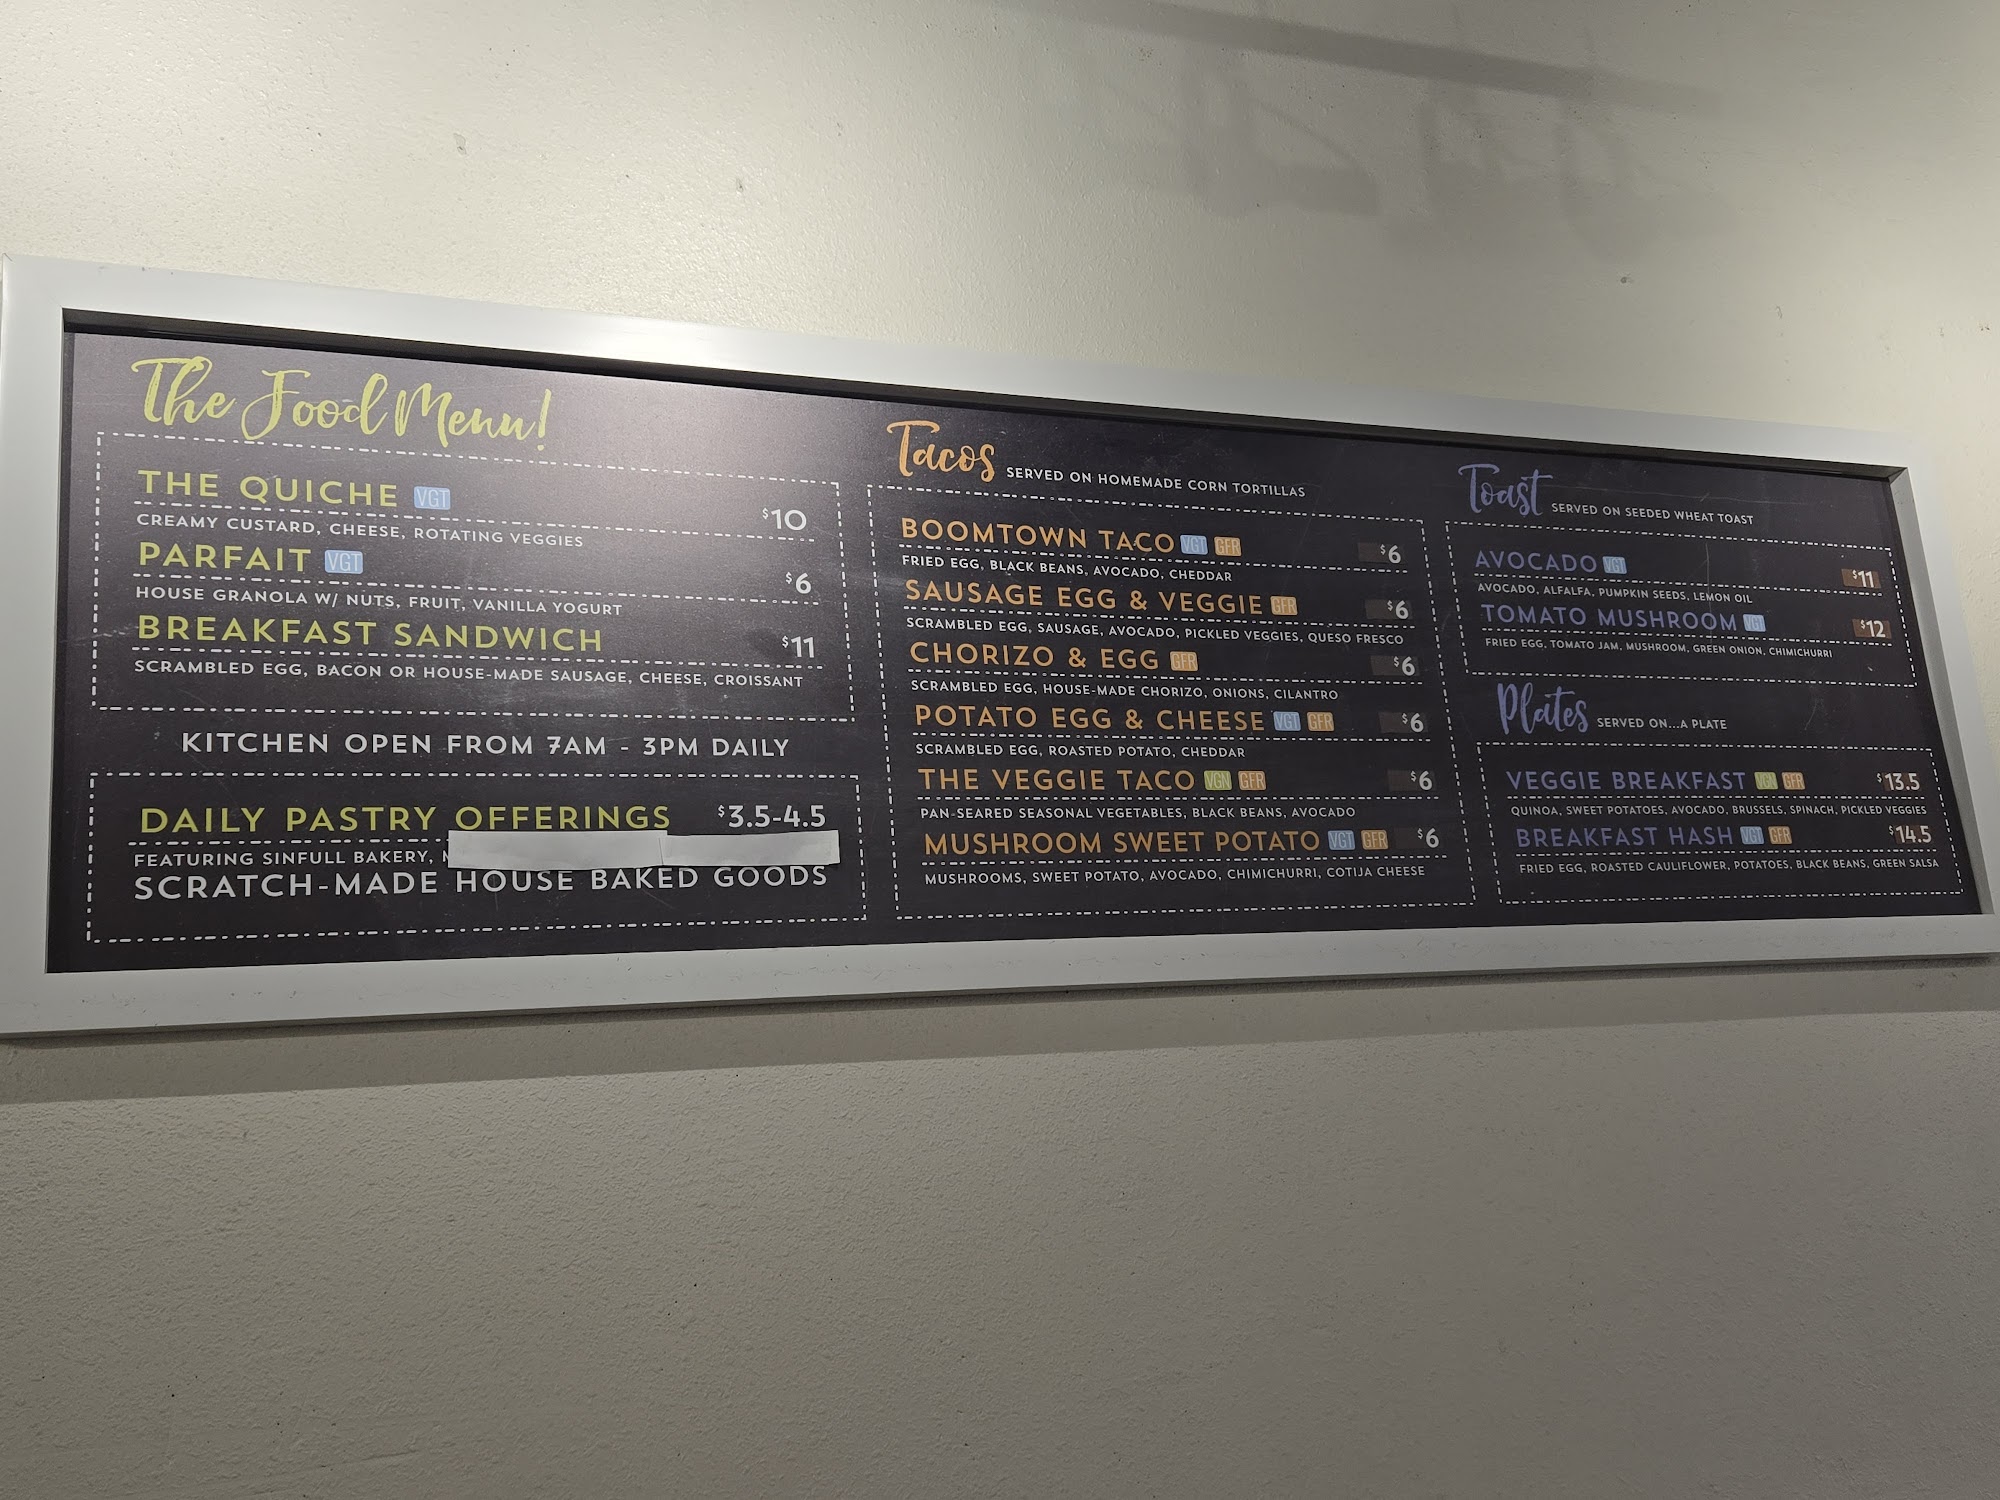 The Food Menu!
THE QUICHE VGT $10
CREAMY CUSTARD, CHEESE, ROTATING VEGGIES
PARFAIT VGT $6
HOUSE GRANOLA W/ NUTS, FRUIT, VANILLA YOGURT
BREAKFAST SANDWICH $11
SCRAMBLED EGG, BACON OR HOUSE-MADE SAUSAGE, CHEESE, CROISSANT
KITCHEN OPEN FROM 7AM - 3PM DAILY
DAILY PASTRY OFFERINGS $3.5-4.5
FEATURING SINFULL BAKERY,
SCRATCH-MADE HOUSE BAKED GOODS
Tacos SERVED ON HOMEMADE CORN TORTILLAS
BOOMTOWN TACO VGT GFR $6
FRIED EGG, BLACK BEANS, AVOCADO, CHEDDAR
SAUSAGE EGG & VEGGIE GFR $6
SCRAMBLED EGG, SAUSAGE, AVOCADO, PICKLED VEGGIES, QUESO FRESCO
CHORIZO & EGG GFR $6
SCRAMBLED EGG, HOUSE-MADE CHORIZO, ONIONS, CILANTRO
POTATO EGG & CHEESE VGT GFR $6
SCRAMBLED EGG, ROASTED POTATO, CHEDDAR
THE VEGGIE TACO VGN GFR $6
PAN-SEARED SEASONAL VEGETABLES, BLACK BEANS, AVOCADO
MUSHROOM SWEET POTATO VGT GFR $6
MUSHROOMS, SWEET POTATO, AVOCADO, CHIMICHURRI, COTIJA CHEESE
Toast SERVED ON SEEDED WHEAT TOAST
AVOCADO VGT $11
AVOCADO, ALFALFA, PUMPKIN SEEDS, LEMON OIL
TOMATO MUSHROOM VGT $12
FRIED EGG, TOMATO JAM, MUSHROOM, GREEN ONION, CHIMICHURRI
Plates SERVED ON...A PLATE
VEGGIE BREAKFAST VGN GFR $13.5
QUINOA, SWEET POTATOES, AVOCADO, BRUSSELS, SPINACH, PICKLED VEGGIES
BREAKFAST HASH VGT GFR $14.5
FRIED EGG, ROASTED CAULIFLOWER, POTATOES, BLACK BEANS, GREEN SALSA